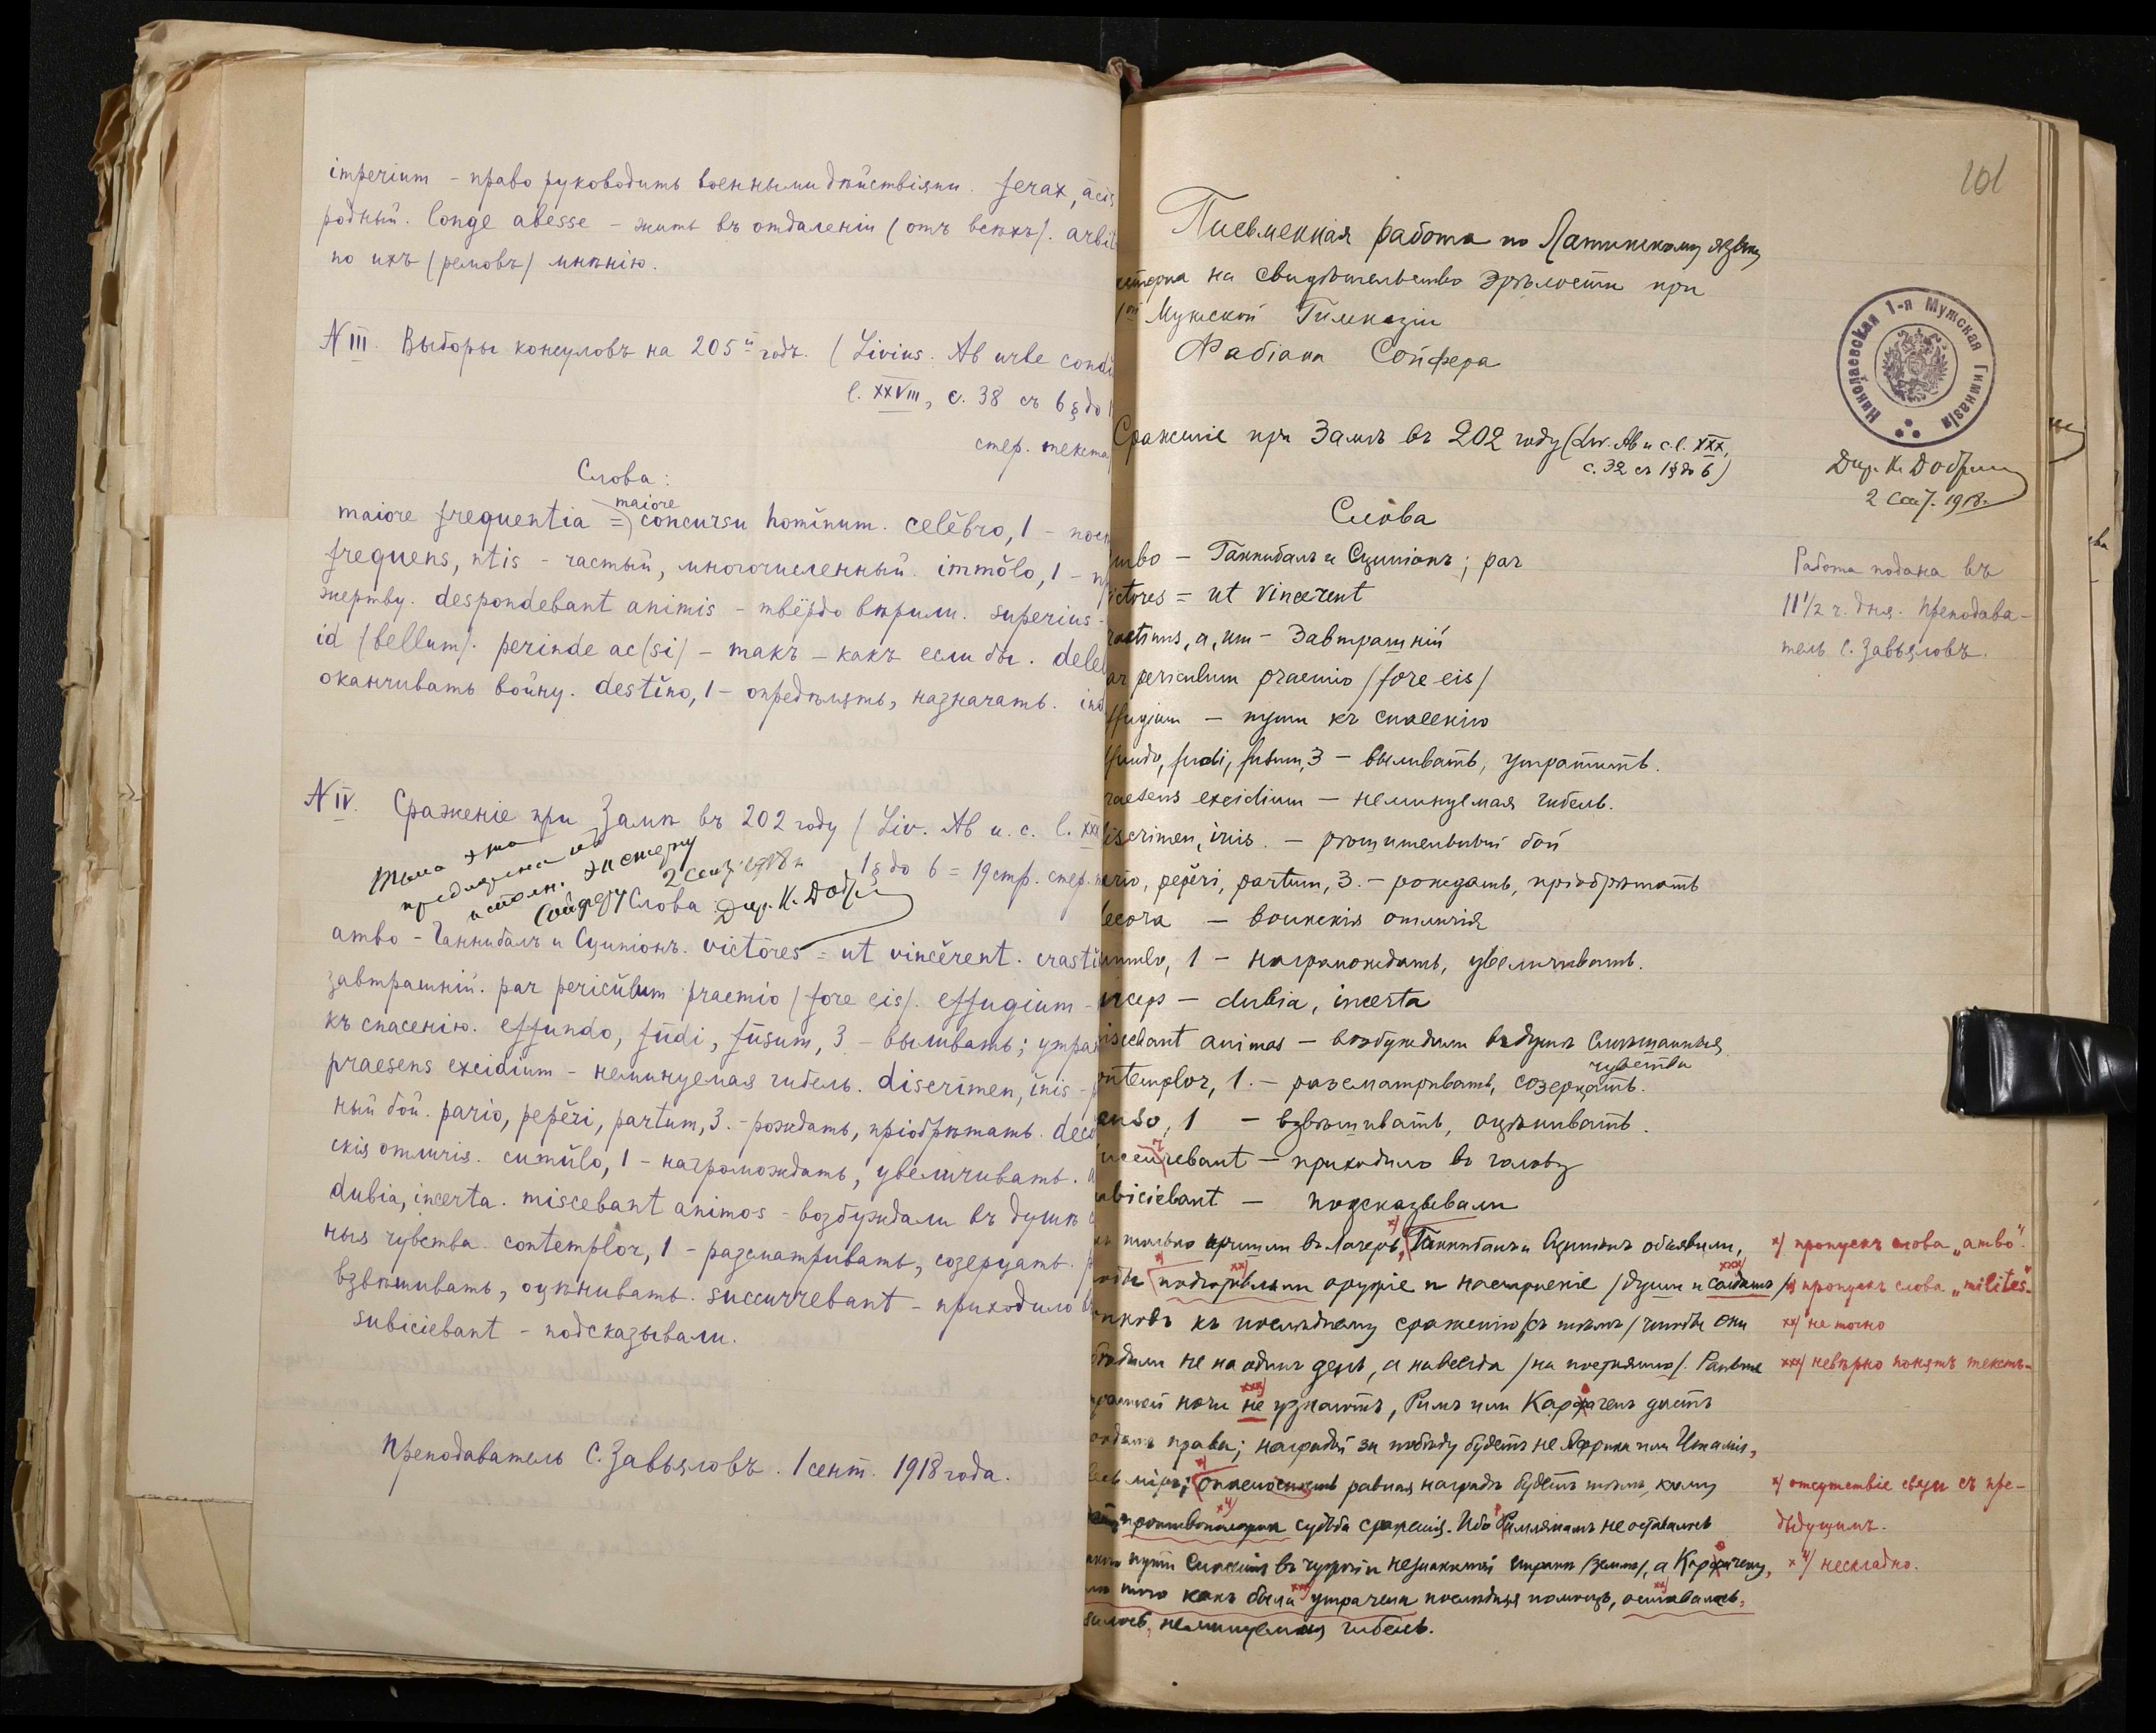 imperium - право руководить военными дѣйствіями. ferax, ācis
родный. longe abesse - жить въ отдаленіи (отъ всѣхъ). arbit
по ихъ (ремовъ) мнѣнію.
N III. Выборы консуловъ на 205й годъ. (Livius. Ab urbe condi
l. XXVIII, c. 38 съ 6 § до 1
стер. текста
Слова:
maiore
maiore frequentia = concursu homĭnum. celĕbro, 1 -
frequens, ntis - частый, многочисленный. immŏlo, 1 -
жертву. despondebant animis - твёрдо вѣрили. superius -
id (bellum). perinde ac(si) - такъ - какъ если бы. debel
оканчивать войну. destĭno, 1 - опредѣлять, назначать.
N IV. Сраженіе при Замѣ въ 202 году (Liv. Ab u. c. l. XXX
1 § до 6 = 19 стр. стер. т
Тема эта
предложена
исполн. экстерну
Сойферу
2 Сент. 1918 г.
Дир. К. Добр
Слова
ambo - Ганнибалъ и Сципіонъ. victōres = ut vincĕrent. crastĭ
завтрашній. par pericŭlum praemio (fore eis). effugium -
къ спасенію. effundo, fūdi, fūsum, 3 - выливать; утра
praesens excidium - неминуемая гибель. discrīmen, ĭnis -
ный бой. pario, pepĕri, partum, 3. - рождать, пріобрѣтать. deco
скія отличія. cumŭlo, 1 - нагромождать, увеличивать.
dubia, incerta. miscebant animos - возбуждали въ душѣ с
ныя чувства. contemplor, 1 - разсматривать, созерцать. p
взвѣшивать, оцѣнивать. succurrebant - приходило в
subiciebant - подсказывали.
Преподаватель С. Завьяловъ. 1 сент. 1918 года.
101
Письменная работа по Латинскому языку
экстерна на свидѣтельство зрѣлости при
1ой Мужской Гимназіи
Фабіана Сойфера
Николаевская 1-я Мужская Гимназія
Дир. К. Добр
2 Сент. 1918 г.
Сраженіе при Замѣ въ 202 году (Liv. Ab u c. l. XXX,
c. 32 съ 1 § до 6)
Слова
Работа подана въ
11 1/2 ч. дня. Преподава-
тель С. Завьяловъ.
mbo - Ганнибалъ и Сципіонъ; par
ictores = ut vincerent
rastinus, a, um - завтрашній
ar periculum praemio (fore eis)
ffugium - пути къ спасенію
ffundo, fudi, fusum, 3 - выливать, утратить.
raesens excidium - неминуемая гибель.
iscrimen, inis. - рѣшительный бой
ario, pepĕri, partum, 3. - рождать, пріобрѣтать
ecora - воинскія отличія
umulo, 1 - нагромождать, увеличивать.
nceps - dubia, incerta
iscebant animos - возбуждали въ душѣ смѣшанныя
чувства
ontemplor, 1. - разсматривать, созерцать.
enso, 1 - взвѣшивать, оцѣнивать.
uccurrebant - приходило въ голову
ubiciebant - подсказывали
только пришли въ лагерь, Ганнибалъ и Сципіонъ объявили,
x) пропускъ слова „ambo“.
подготовляли оружіе и настроеніе (души и солдатъ)
x) пропускъ слова „milites“.
къ послѣднему сраженію (съ тѣмъ) чтобы они
xx) не точно
не на одинъ день, а навсегда (на постоянно). Раньше
xxx) невѣрно понятъ текстъ.
ночи не узнаютъ, Римъ или Карфагенъ дастъ
права; наградой за побѣду будетъ не Африка или Италія,
міръ; опасность равная наградѣ будетъ тѣмъ, кому
x) отсутствіе связи съ пре-
противоположна судьба сраженія. Ибо Римлянамъ не оставалось
дыдущимъ.
пути спасенія въ чужой и незнакомой странѣ (землѣ), а Карфагену,
x4) нескладно.
того какъ была утрачена послѣдняя помощь, оставалась,
неминуемая гибель.